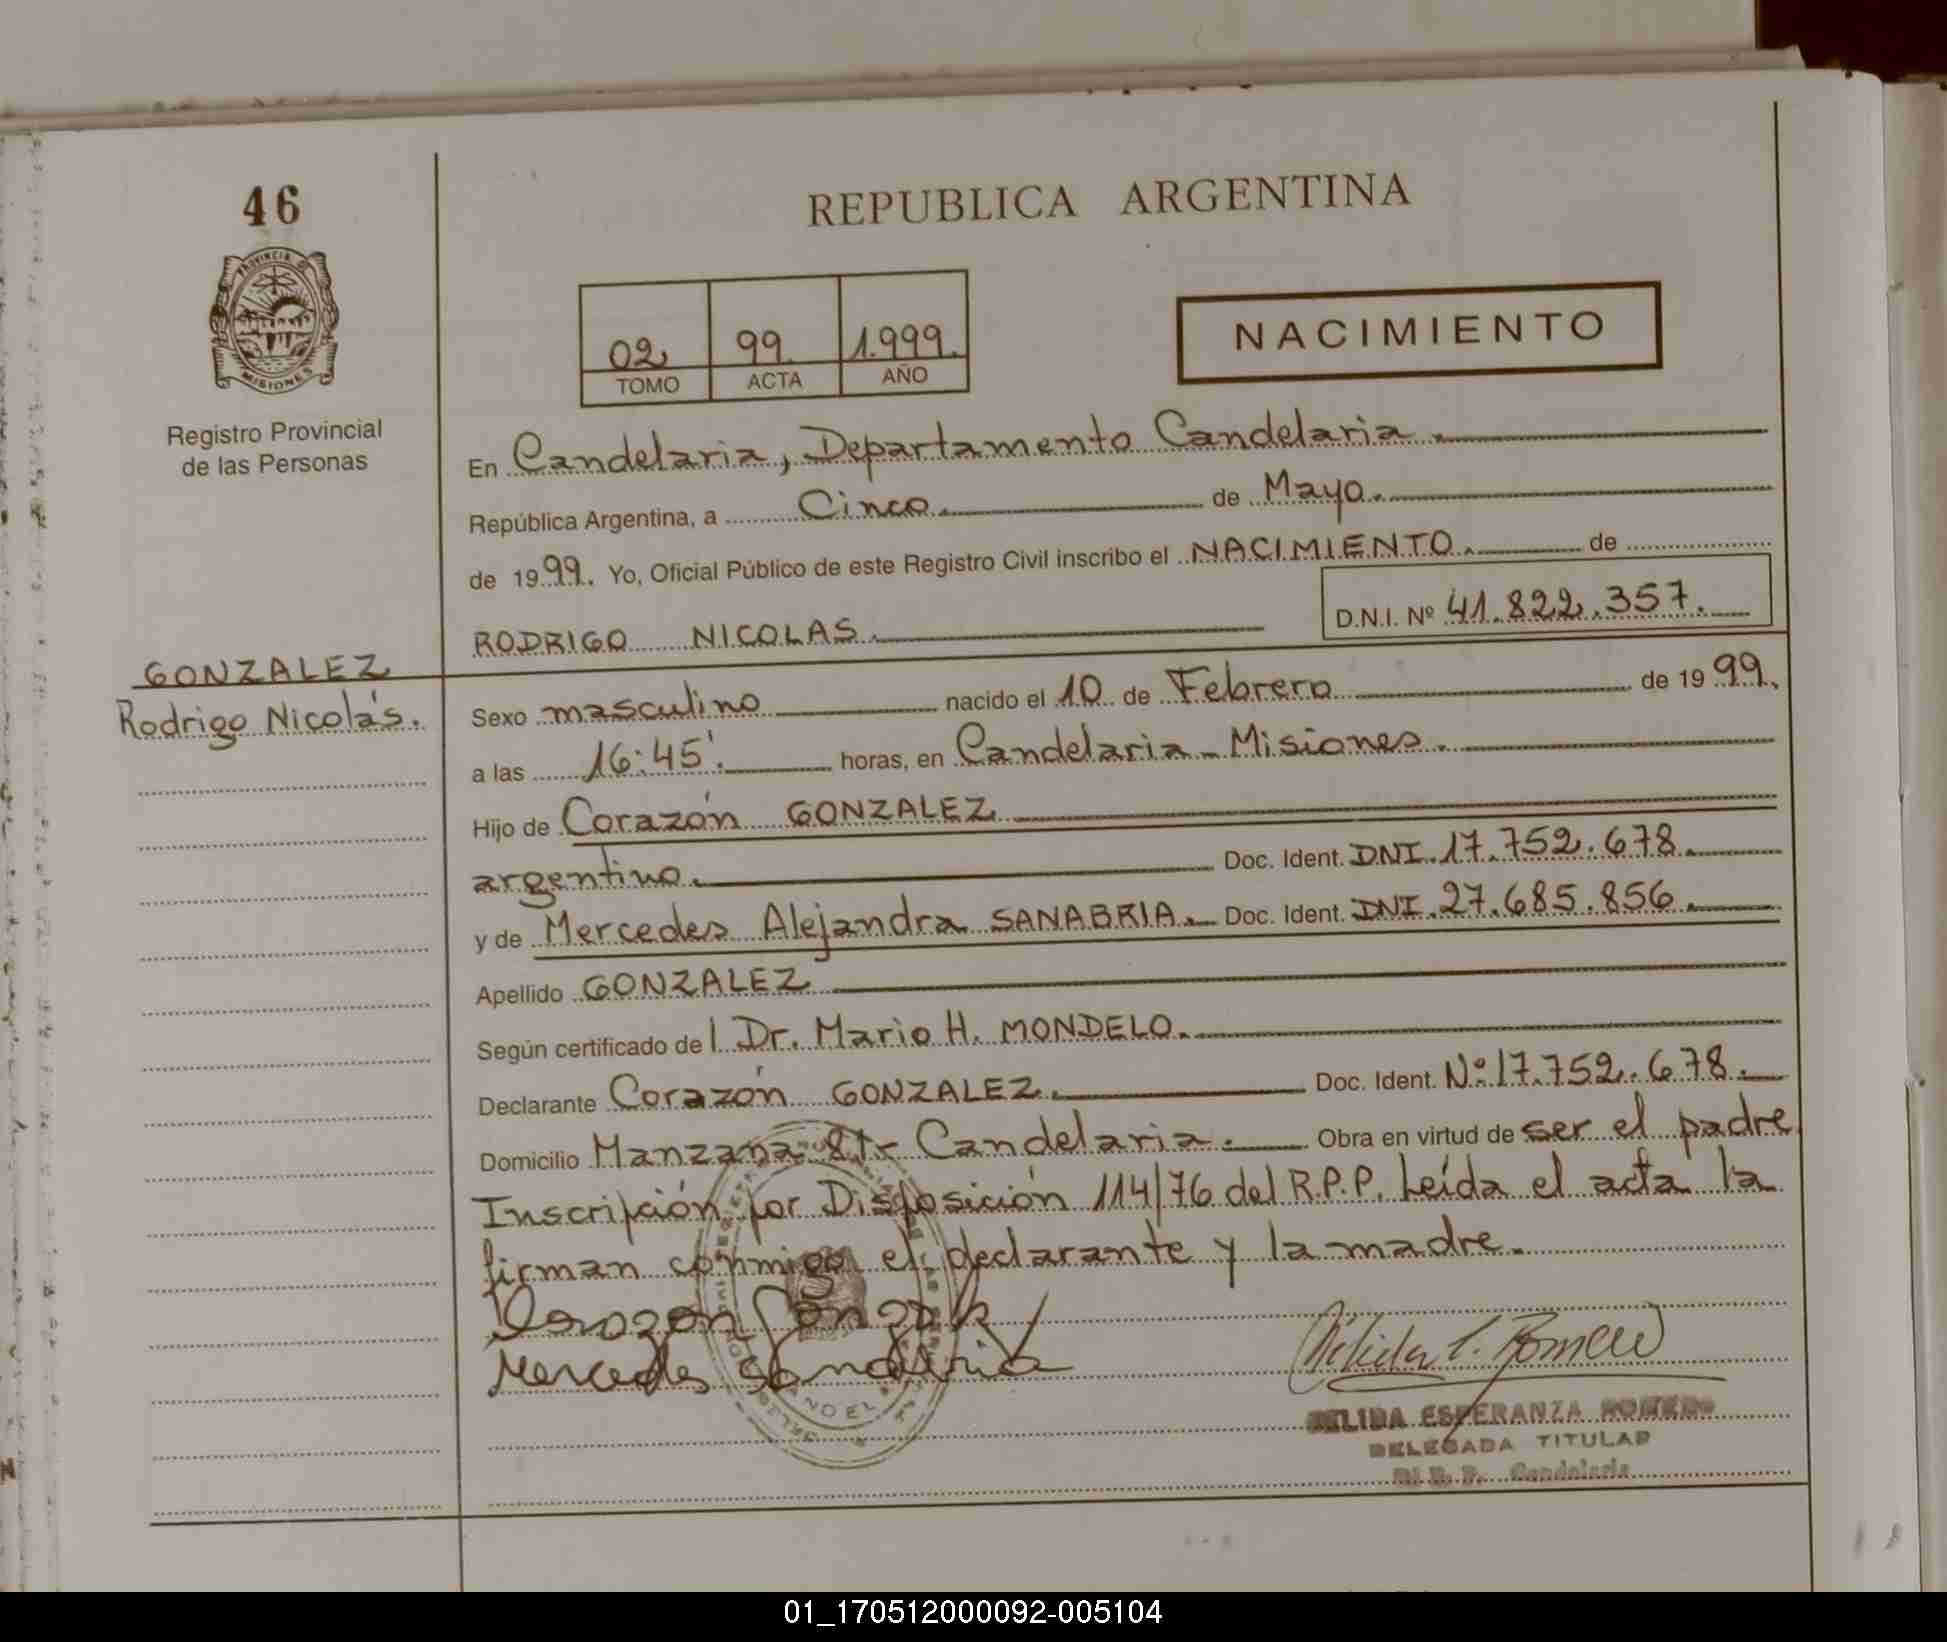 46
PROVINCIA DE
MISIONES
Registro Provincial
de las Personas
GONZALEZ
Rodrigo Nicolás.
REPUBLICA ARGENTINA
02 99. 1.999.
TOMO ACTA AÑO
NACIMIENTO
En Candelaria, Departamento Candelaria.
República Argentina, a Cinco. de Mayo.
de 1999. Yo, Oficial Público de este Registro Civil inscribo el NACIMIENTO. de
RODRIGO NICOLAS. D.N.I. Nº 41.822.357.
Sexo masculino nacido el 10 de Febrero de 1999.
a las 16:45'. horas, en Candelaria - Misiones.
Hijo de Corazón GONZALEZ
argentino. Doc. Ident. DNI.17.752.678.
y de Mercedes Alejandra SANABRIA. Doc. Ident. DNI.27.685.856.
Apellido GONZALEZ
Según certificado del Dr. Mario H. MONDELO.
Declarante Corazón GONZALEZ. Doc. Ident. Nº 17.752.678.
Domicilio Manzana 81.- Candelaria. Obra en virtud de ser el padre
Inscripción por Disposición 114/76 del R.P.P. Leída el acta la
firman conmigo el declarante y la madre.
Corazon Gonzalez
Mercedes Sanabria
Nelida E. Romero
NELIDA ESPERANZA ROMERO
DELEGADA TITULAR
Candelaria
01_170512000092-005104